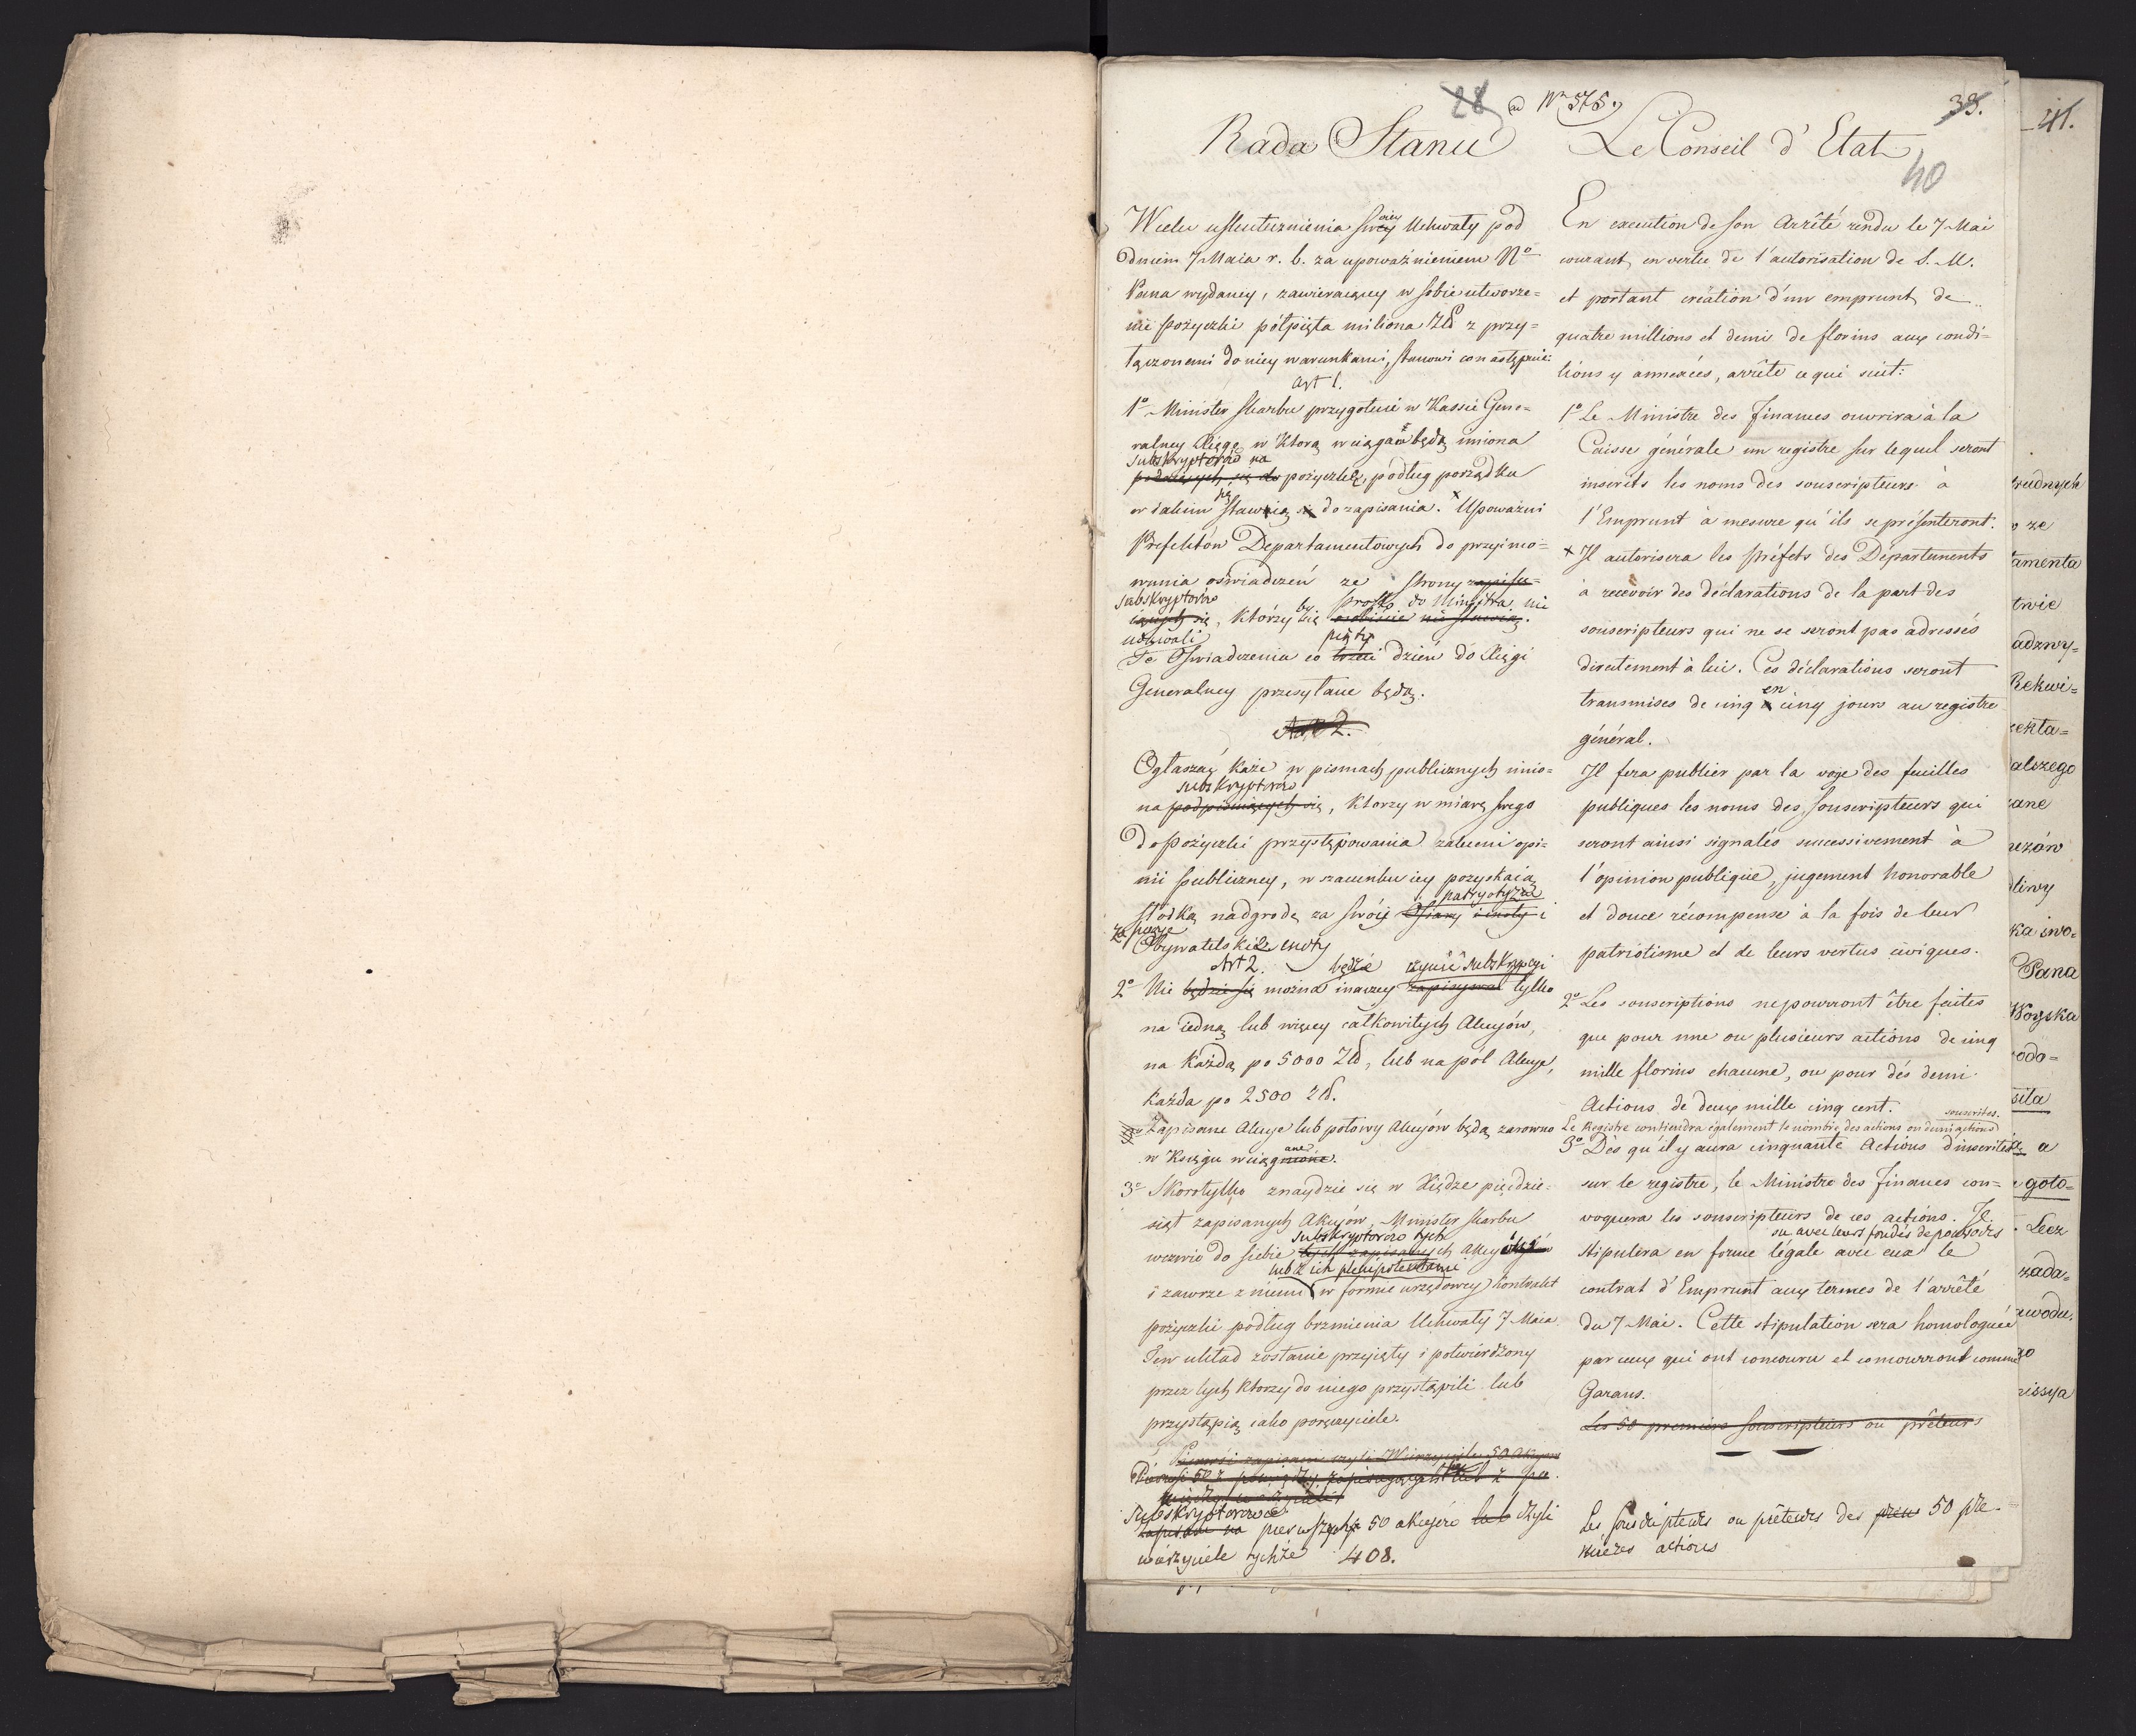 28 ad Nr 575.
33.
40
Rada Stanu
W celu uskutecznienia swoiey Uchwały pod
dniem 7 Maia r. b. za upoważnieniem No
Pana wydaney, zawieraiącey w sobie utworze=
nie pożyczki półpięta miliona Zł z przy=
łączonemi do niey warunkami, stanowi co następuie:
Art 1.
1o Minister Skarbu przygotuie w Kassie Gene=
ralney Xięgę w którą wciągane będą imiona
Subskryptorów na
podaiących się do pożyczkę, podług porządku
w iakim się stawią do zapisania. × Upoważni
Prefektów Departamentowych do przyimo=
wania oświadczeń ze strony zapisu=
Subskryptorów by prosto do Ministra nie
iących się, którzy się osobiście nie stawią.
udawali piąty
Te Oświadczenia co trzeci dzień do Xięgi
Generalney przesyłane będą.
Art 2.
Ogłaszać każe w pismach publicznych imio=
Subskryptorów
na podpisuiących się, którzy w miarę swego
do pożyczki przystępowania zaleceni opi=
nii publiczney, w szacunku iey pozyskaią
patryotyzm
słodką nadgrodę za swóie Ofiary i cnoty i
za swoje
Obywatelskie cnoty
Art 2. będzie czynić Subskrypcyi
2o Nie będzie się można inaczey zapisywać tylko
na iedną lub więcey całkowitych Akcyów,
na każdą po 5000 Zł, lub na pół Akcye,
każda po 2500 zł.
3o Zapisane Akcye lub połowy Akcyów będą zarowno
w Księgę wciągnione.
ane
3o Skorotylko znaydzie się w Xiędze pięćdzie=
siąt zapisanych Akcyów, Minister Skarbu
Subskryptorów tych
wezwie do siebie tych zapisanych Akcyów
lub z ich plenipotentami
i zawrze z niemi w formie urzędowey kontrakt
pożyczki podług brzmienia Uchwały 7 Maia.
Ten układ zostanie przyięty i potwierdzony
przez tych którzy do niego przystąpili lub
przystąpią iako poręczyciele.
Subskryptorowie
zapisani na pierwszych 50 akcyów lub czyli
wierzyciele tychże 408.
Le Conseil d'Etat
En execution de son Arrêté rendu le 7 Mai
courant, en vertu de l'autorisation de S. M.
et portant création d'un emprunt de
quatre millions et demi de florins aux condi=
tions y annexées, arrête ce qui suit:
1o Le Ministre des Finances ouvrira à la
Caisse générale un registre sur lequel seront
inscrits les noms des souscripteurs à
l'Emprunt à mesure qu'ils se présenteront.
× Il autorisera les Préfets des Départements
à recevoir des déclarations de la part des
souscripteurs qui ne se seront pas adressés
directement à lui. Ces déclarations seront
transmises de cinq en cinq jours au registre
général.
Il fera publier par la voye des feuilles
publiques les noms des souscripteurs qui
seront ainsi signalés successivement à
l'opinion publique, jugement honorable
et douce récompense à la fois de leur
patriotisme et de leurs vertus civiques.
2o Les souscriptions ne pourront être faites
que pour une ou plusieurs actions de cinq
mille florins chacune, ou pour des demi
Actions de deux mille cinq cent.
souscrites.
Le Registre contiendra également le nombre des actions ou demi actions
3o Dès qu'il y aura cinquante Actions d'inscrites
sur le registre, le Ministre des Finances con=
voquera les souscripteurs de ces actions. Il
ou avec leurs fondés de pouvoirs
stipulera en forme légale avec eux le
contrat d'Emprunt aux termes de l'arrêté
du 7 Mai. Cette stipulation sera homologuée
par ceux qui ont concouru et concourront comme
Garans.
Les 50 premiers souscripteurs ou prêteurs
Les souscripteurs ou prêteurs des 50 pre=
mières actions
41.
trudnych
o ze
tamenta
twie
adzwy=
Rekwi=
alszego
Pana
Woyska
odo=
siła
a
goto=
Lecz
zada=
awodu,
missya